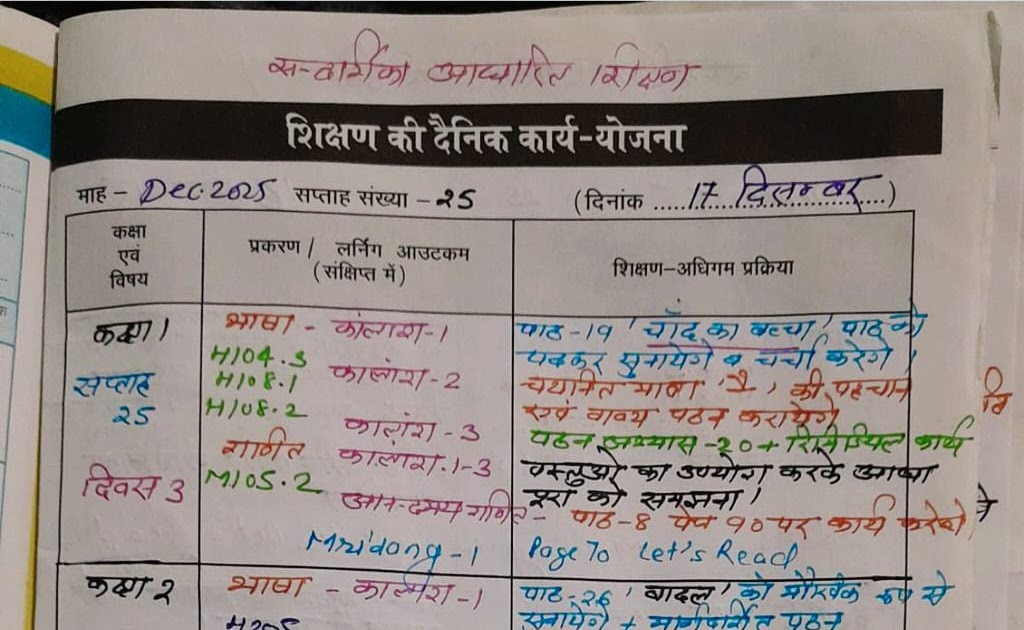 सन्दर्शिका आधारित शिक्षण
शिक्षण की दैनिक कार्य-योजना
माह - Dec. 2025 सप्ताह संख्या - 25 (दिनांक ..... 17 दिसम्बर .....)
कक्षा एवं विषय
प्रकरण / लर्निंग आउटकम
(संक्षिप्त में)
शिक्षण-अधिगम प्रक्रिया
कक्षा 1
सप्ताह
25
दिवस 3
भाषा - कालांश-1
H104.3
H108.1 कालांश-2
H108.2
कालांश-3
गणित कालांश.1-3
M105.2
आनन्दमय गणित -
Mridang-1
पाठ-19 'चाँद का बच्चा' पाठ को
पढ़कर सुनायेंगे व चर्चा करेंगे।
चयनित मात्रा ' ै ' की पहचान
एवं वाक्य पठन करायेंगे
पठन अभ्यास-20 + रिमेडियल कार्य
वस्तुओं का उपयोग करके आधा
पूरा को समझना।
पाठ-8 पेज 90 पर कार्य करेंगे।
Page 70 Let's Read
कक्षा 2
भाषा - कालांश-1
H205
पाठ-26 'बादल' को मौखिक रूप से
सुनायेंगे + मार्गदर्शित पठन